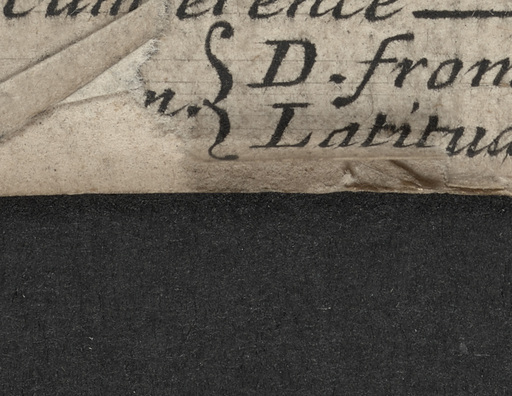 cumference
D. from
n. { Latitud